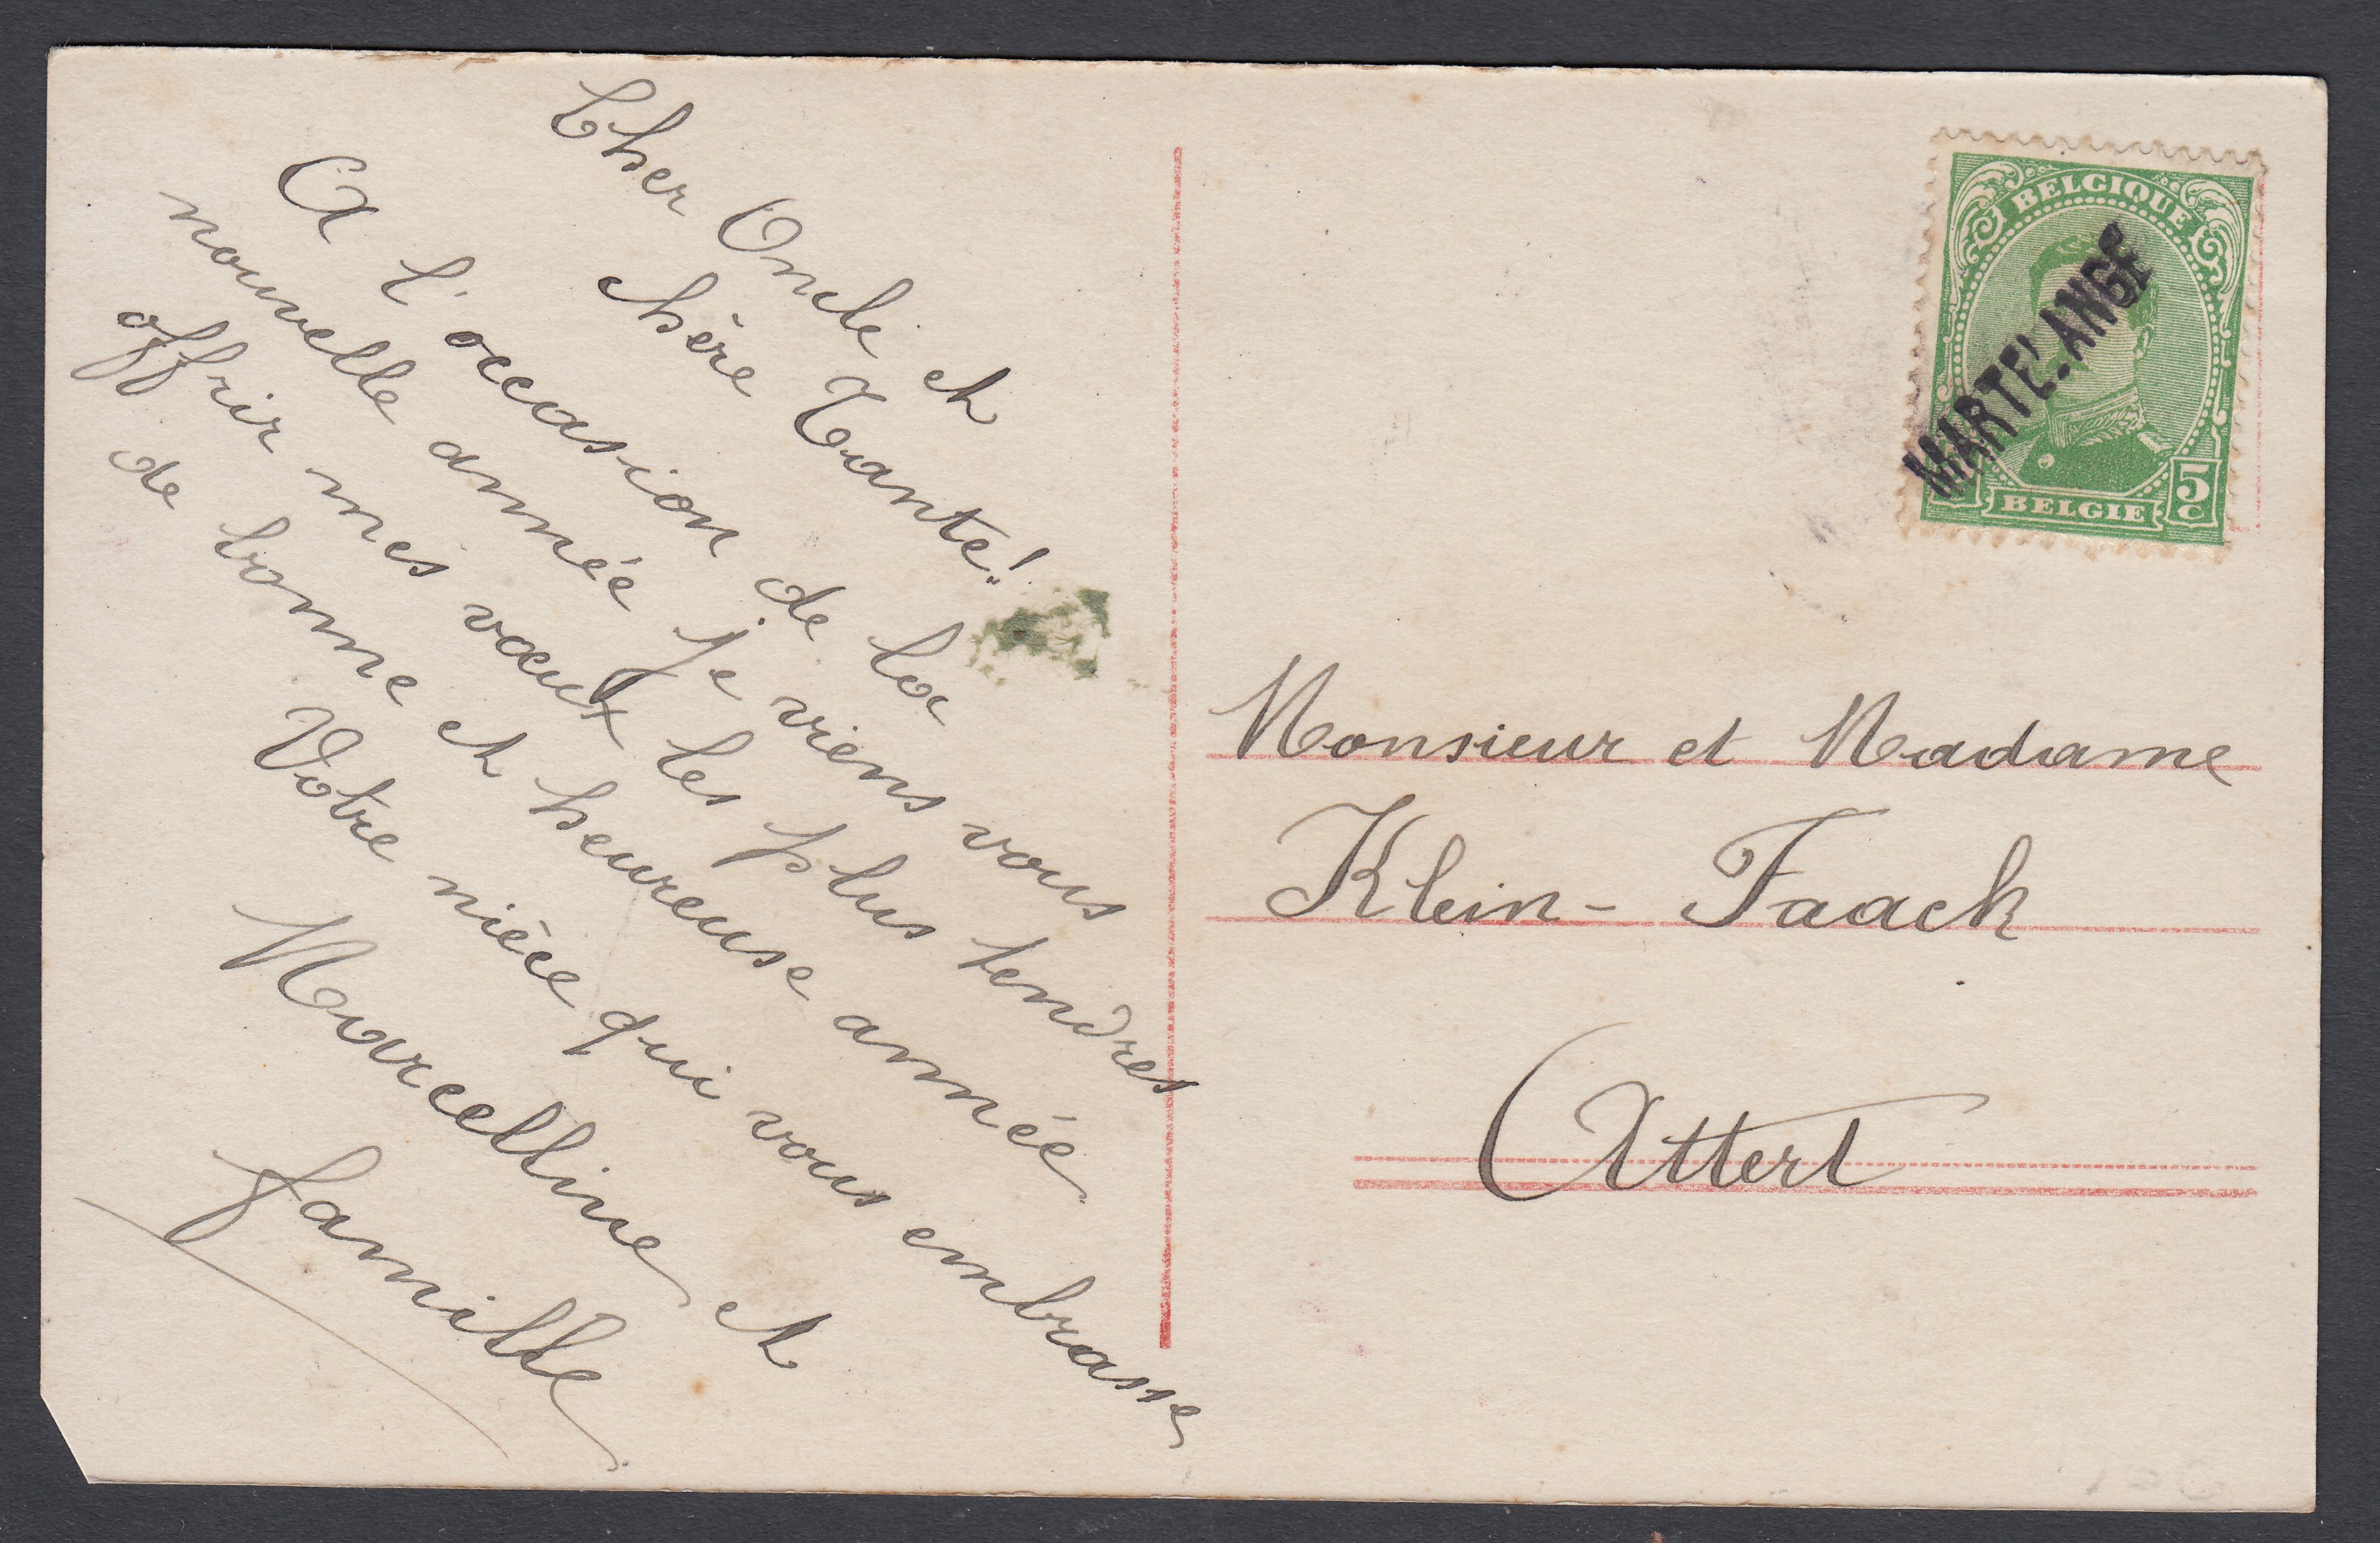 Cher Oncle et
chère Tante!
A l'occasion de la
nouvelle année je viens vous
offrir mes vœux les plus tendres
de bonne et heureuse année
Votre nièce qui vous embrasse
Marcelline et
famille
BELGIQUE
MARTELANGE
5 c
BELGIE
Monsieur et Madame
Klein - Faack
Attert